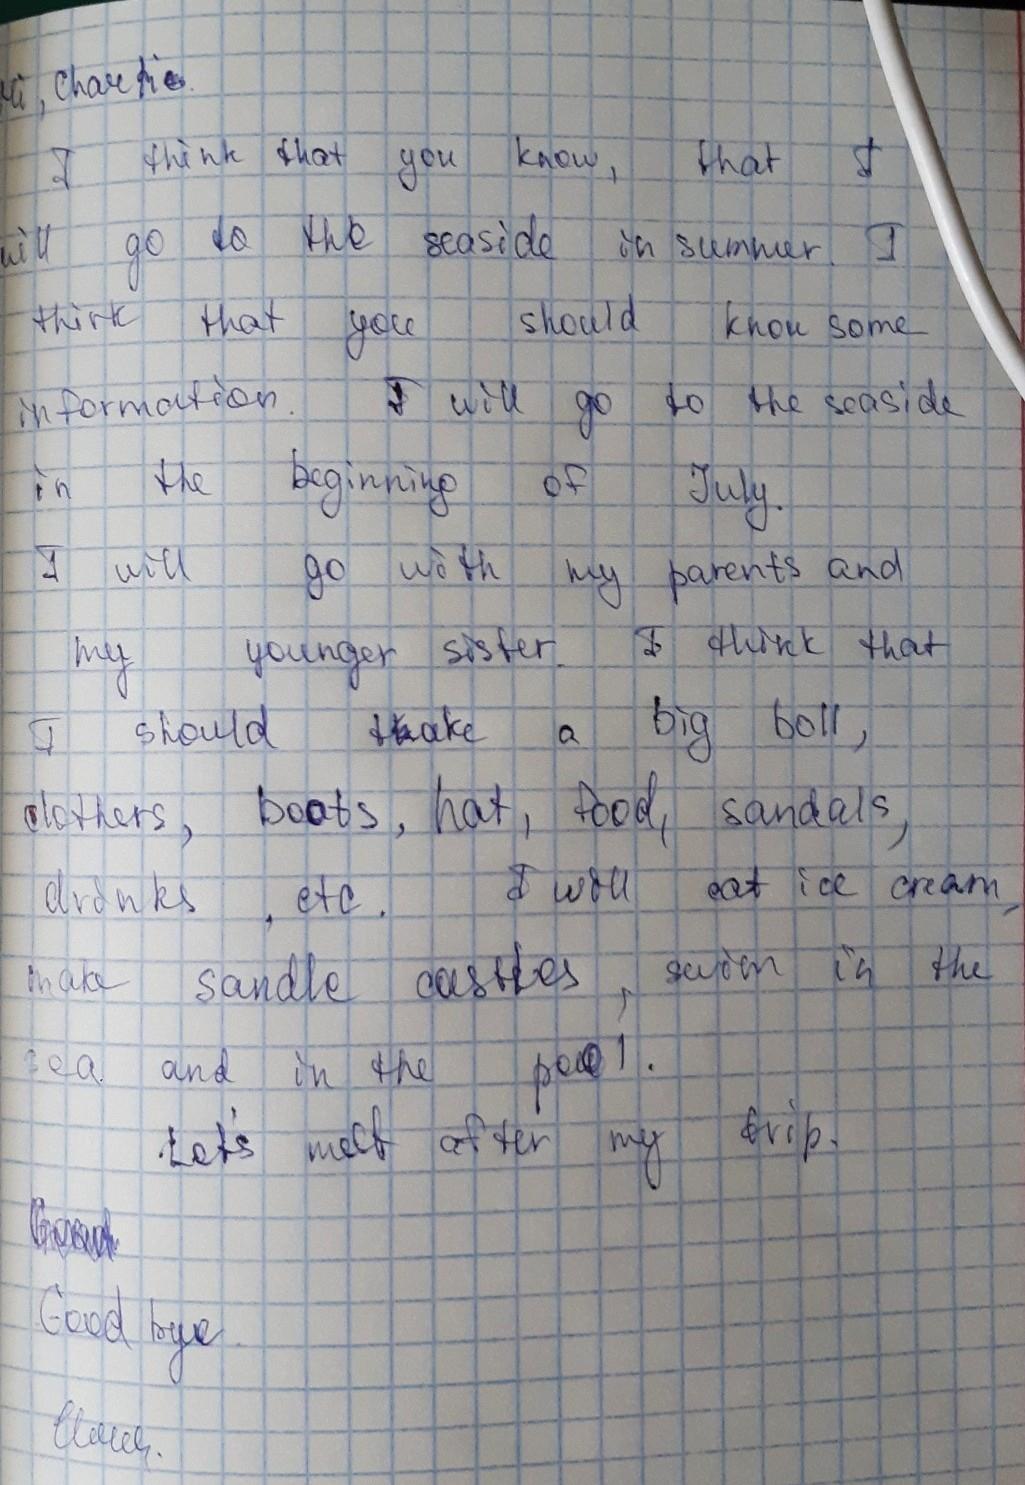 Hi, Charlie.
I think that you know, that I
will go to the seaside in summer. I
think that you should know some
information. I will go to the seaside
in the beginning of July.
I will go with my parents and
my younger sister. I think that
I should take a big boll,
clothers, boots, hat, food, sandals,
drinks, etc. I will eat ice cream,
make sandle castles, swim in the
sea and in the pool.
Let's meet after my trip.
Good bye.